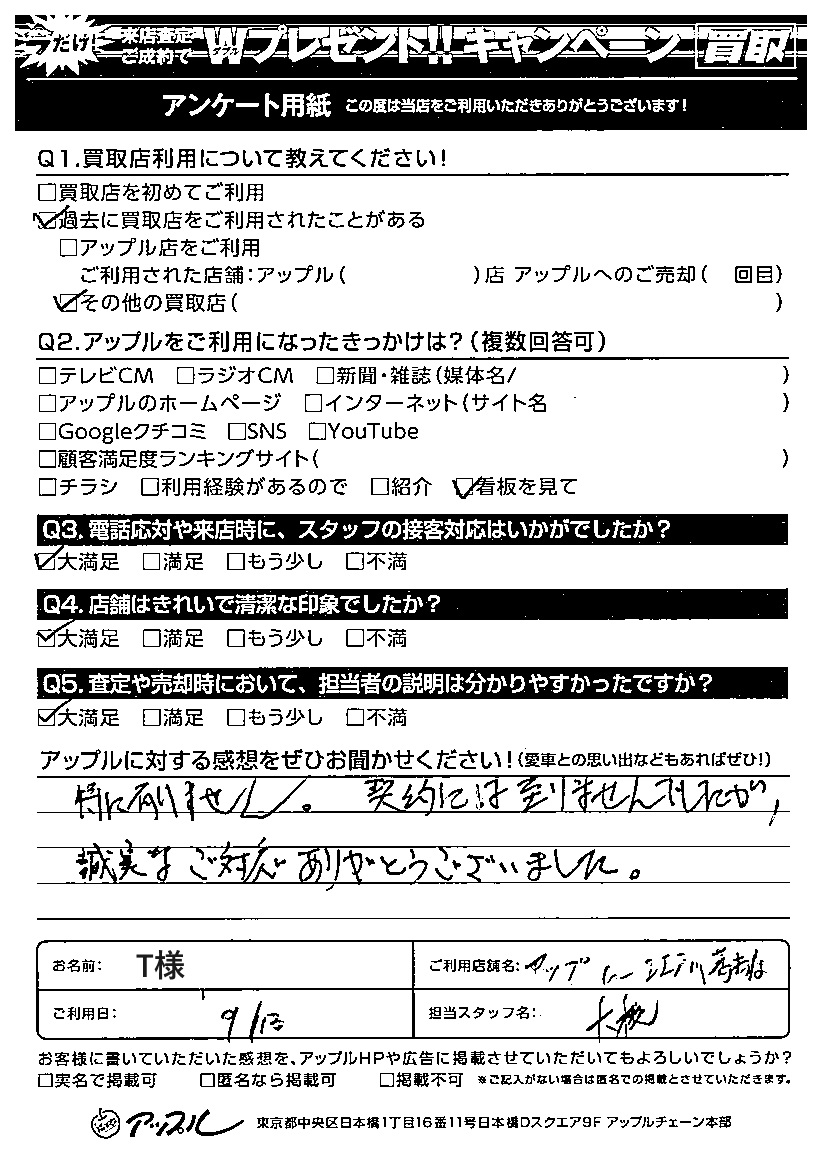 だけ! 来店査定ご成約で Wダブルプレゼント!! キャンペーン 買取
アンケート用紙 この度は当店をご利用いただきありがとうございます!
Q1.買取店利用について教えてください!
□買取店を初めてご利用
☑過去に買取店をご利用されたことがある
□アップル店をご利用
ご利用された店舗:アップル( )店 アップルへのご売却( 回目)
☑その他の買取店( )
Q2.アップルをご利用になったきっかけは?(複数回答可)
□テレビCM □ラジオCM □新聞・雑誌(媒体名/ )
□アップルのホームページ □インターネット(サイト名 )
□Googleクチコミ □SNS □YouTube
□顧客満足度ランキングサイト( )
□チラシ □利用経験があるので □紹介 ☑看板を見て
Q3. 電話応対や来店時に、スタッフの接客対応はいかがでしたか?
☑大満足 □満足 □もう少し □不満
Q4. 店舗はきれいで清潔な印象でしたか?
☑大満足 □満足 □もう少し □不満
Q5. 査定や売却時において、担当者の説明は分かりやすかったですか?
☑大満足 □満足 □もう少し □不満
アップルに対する感想をぜひお聞かせください!(愛車との思い出などもあればぜひ!)
特に有りません。 契約には至りませんでしたが,
誠実なご対応ありがとうございました。
お名前: T様 ご利用店舗名: アップル 江戸川
ご利用日: 9/ 担当スタッフ名: 大板
お客様に書いていただいた感想を、アップルHPや広告に掲載させていただいてもよろしいでしょうか?
□実名で掲載可 □匿名なら掲載可 □掲載不可 ※ご記入がない場合は匿名での掲載とさせていただきます。
アップル 東京都中央区日本橋1丁目16番11号日本橋Dスクエア9F アップルチェーン本部